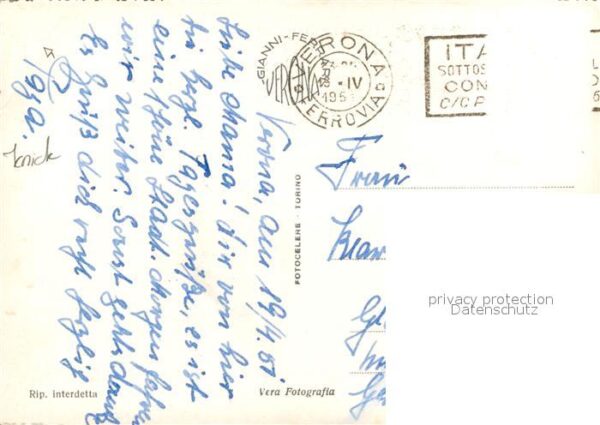 GIANNI-FER
VERONA
FERROVIA
-IV
195
ITA
SOTTOS
CON
C/C P
Verona, am 19/4.
Liebe Mama! Dir von hier
die herzl. Tagesgrüße, es ist
eine schöne Stadt. Morgen fahren
wir weiter. Sonst geht's danke
Es grüßt dich recht herzlich
Knick
Frau
FOTOCELERE - TORINO
privacy protection
Datenschutz
Rip. interdetta
Vera Fotografia